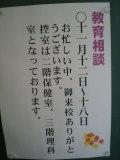 教育相談
〇十一月十二日、十八日
お忙しい中、御来校ありがと
うございます。
控室は二階保健室、三階理科
室となっております。